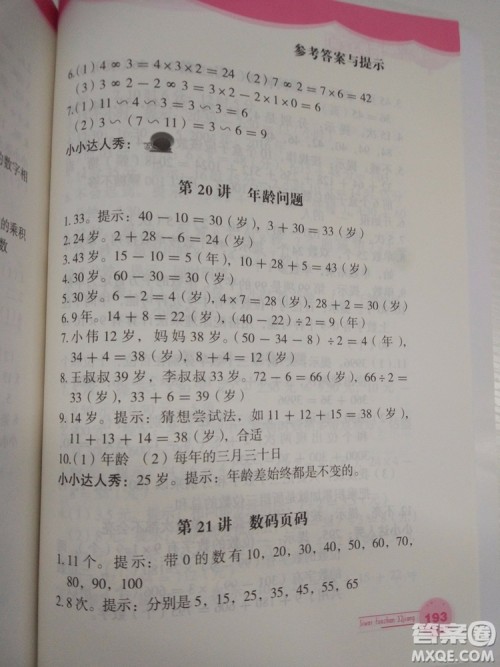 参考答案与提示
6.(1) 4∞3=4×3×2=24 (2) 7∞2=7×6=42
(3) 2∞3∞2=3×2-2×1×0=0
7.(1) 11∽4∽3=3∽3=6
(2) 3∽(7∽11)=3∽6=9
小小达人秀:
第20讲 年龄问题
1.33。提示:40-10=30(岁),3+30=33(岁)
2.24岁。2+28-6=24(岁)
3.43岁。15-10=5(年),10+28+5=43(岁)
4.30岁。60-30=30(岁)
5.30岁。6-2=4(岁),4×7=28(岁),28+2=30(岁)
6.9年。14+8=22(岁),(40-22)÷2=9(年)
7.小伟12岁,妈妈38岁。(50-34-8)÷2=4(年),
34+4=38(岁),8+4=12(岁)
8.王叔叔39岁,李叔叔33岁。72-6=66(岁),66÷2=
33(岁),33+6=39(岁)
9.14岁。提示:猜想尝试法,如11+12+15=38(岁),
11+13+14=38(岁),合适
10.(1)年龄 (2)每年的三月三十日
小小达人秀:25岁。提示:年龄差始终都是不变的。
第21讲 数码页码
1.11个。提示:带0的数有10,20,30,40,50,60,70,
80,90,100
2.8次。提示:分别是5,15,25,35,45,55,65
193
的数字相
的乘积
数
答案圈
MXQE.COM